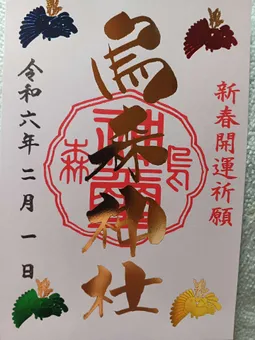 新春開運祈願
烏森神社
令和六年二月一日
烏
森